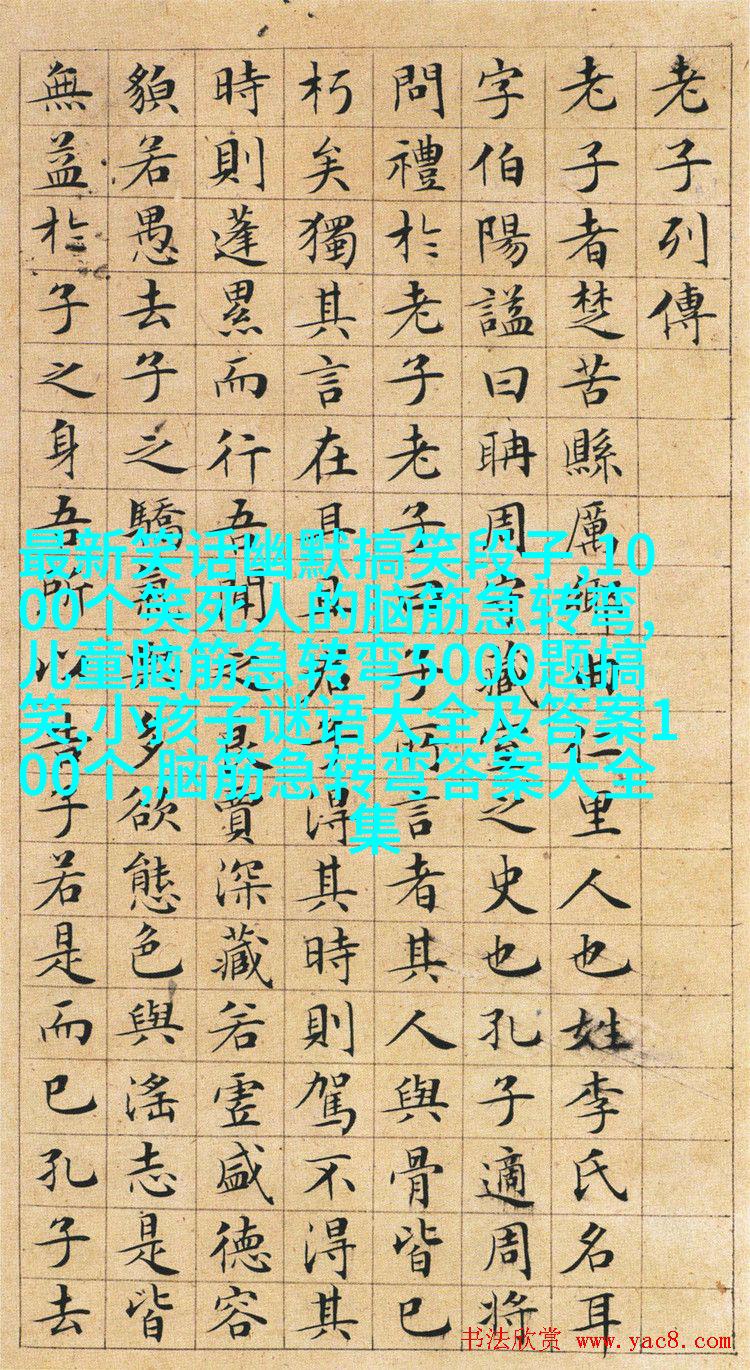 老子列傳
老子者楚苦縣厲鄉曲仁里人也姓李氏名耳
字伯陽謚曰聃周守藏室之史也孔子適周將
問禮於老子老子曰子所言者其人與骨皆已
朽矣獨其言在耳且君子得其時則駕不得其
時則蓬累而行吾聞之良賈深藏若虛盛德容
貌若愚去子之驕氣與多欲態色與淫志是皆
無益於子之身吾所以告子若是而已孔子去
最新笑话幽默搞笑段子,10
00个笑死人的脑筋急转弯,
儿童脑筋急转弯5000题搞
笑,小孩子谜语大全及答案1
00个,脑筋急转弯答案大全
集
书法欣赏 www.yac8.com